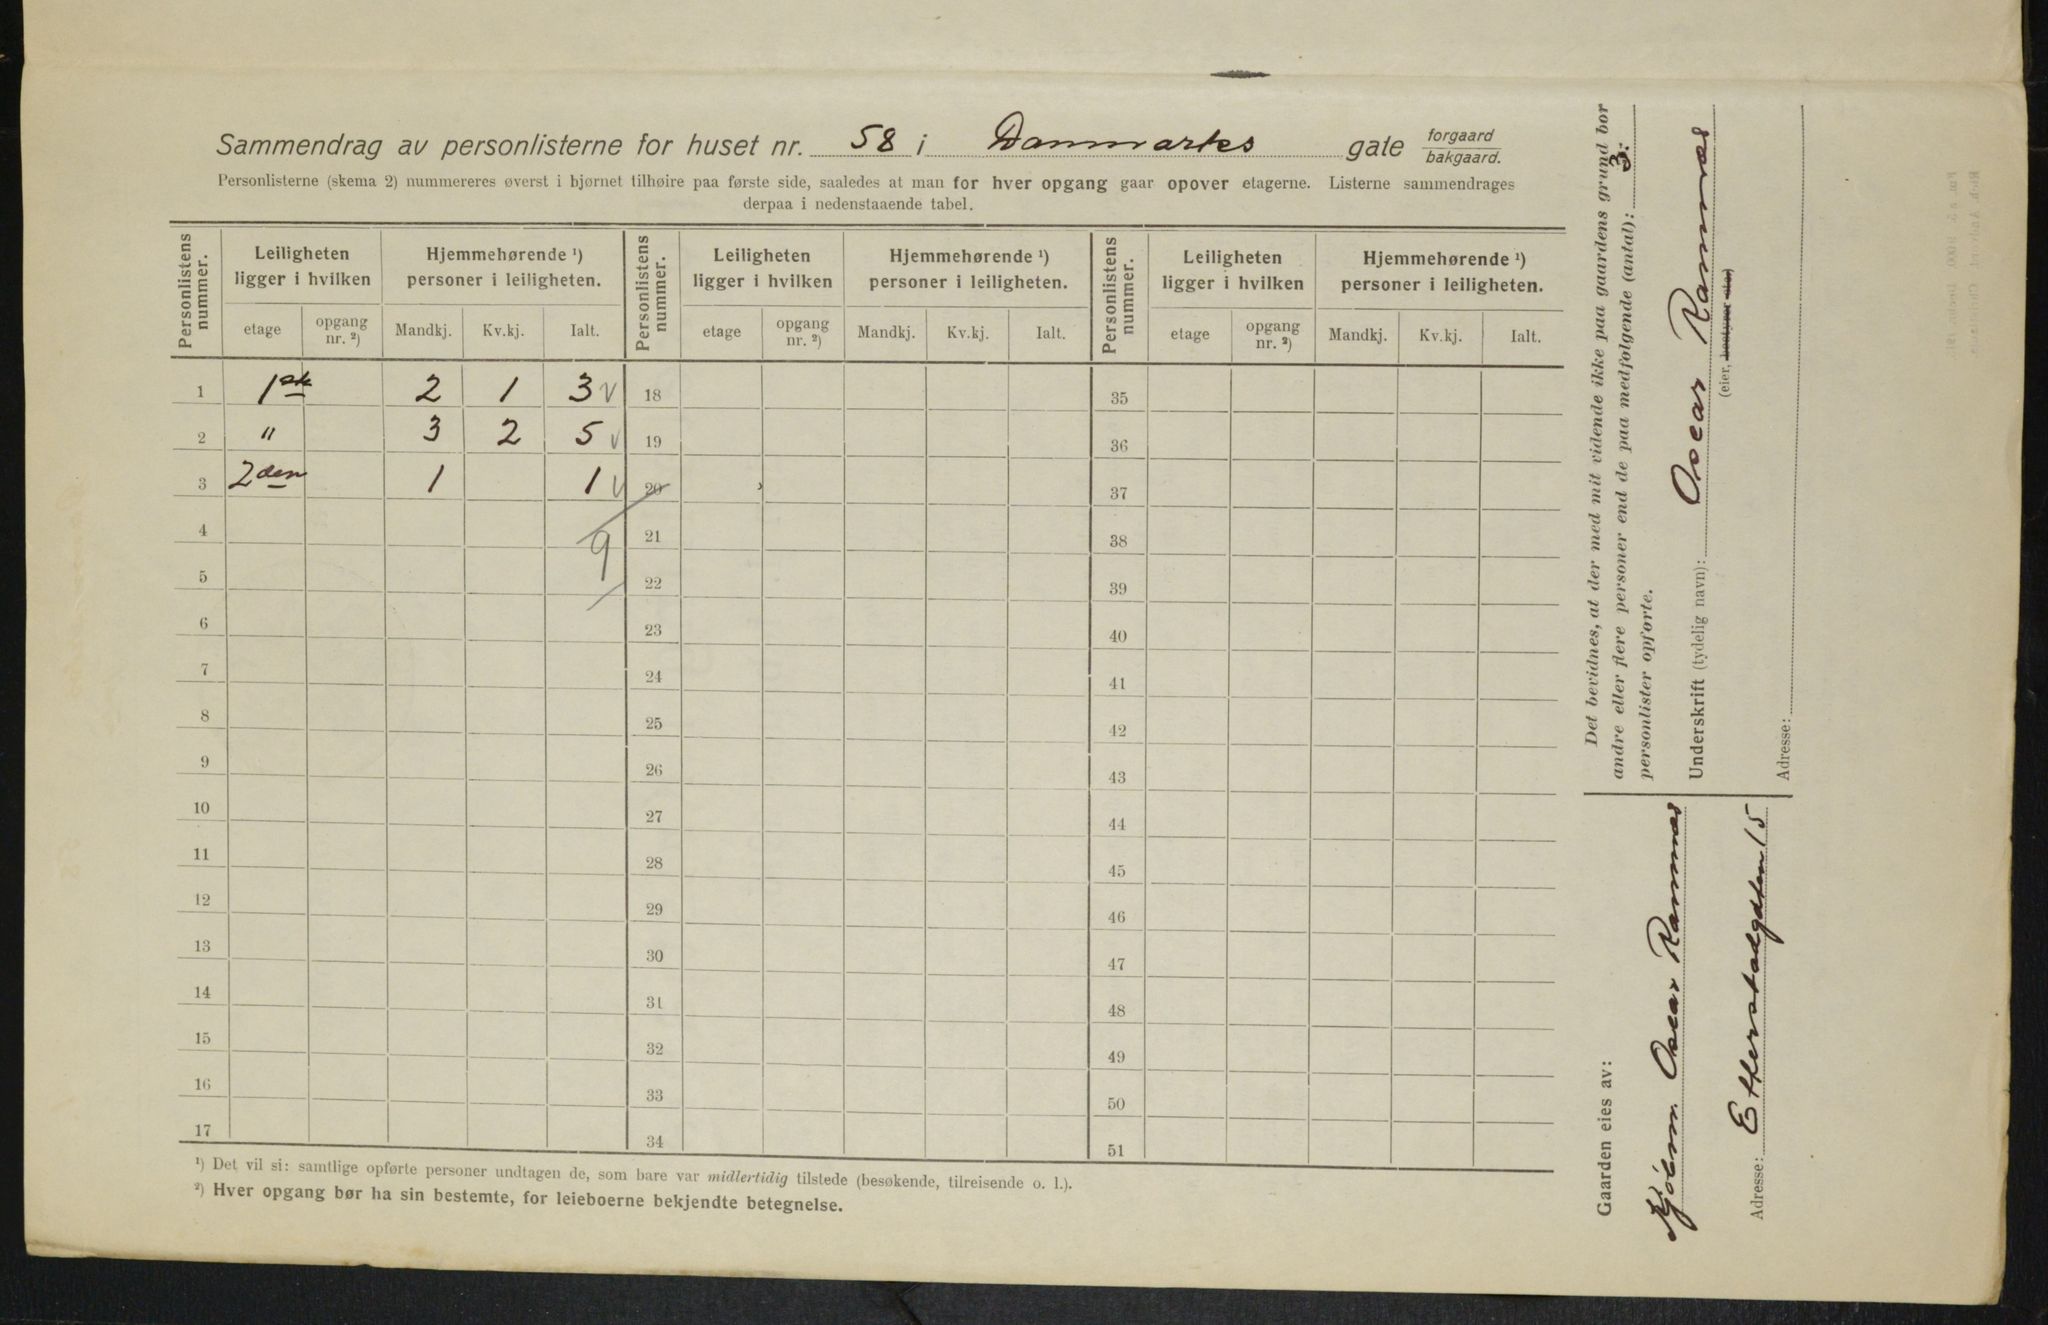 Sammendrag av personlisterne for huset nr. 58 i Danmarks gate forgaard bakgaard.
Personlisterne (skema 2) nummereres øverst i hjørnet tilhøire paa første side, saaledes at man for hver opgang gaar opover etagerne. Listerne sammendrages
derpaa i nedenstaaende tabel.
Personlistens nummer. Leiligheten ligger i hvilken Hjemmehørende ¹) personer i leiligheten. Personlistens nummer. Leiligheten ligger i hvilken Hjemmehørende ¹) personer i leiligheten. Personlistens nummer. Leiligheten ligger i hvilken Hjemmehørende ¹) personer i leiligheten.
etage opgang nr. ²) Mandkj. Kv.kj. Ialt. etage opgang nr. ²) Mandkj. Kv.kj. Ialt. etage opgang nr. ²) Mandkj. Kv.kj. Ialt.
1 1ste 2 1 3 18 35
2 " 3 2 5 19 36
3 2den 1 1 20 37
4 9 21 38
5 22 39
6 23 40
7 24 41
8 25 42
9 26 43
10 27 44
11 28 45
12 29 46
13 30 47
14 31 48
15 32 49
16 33 50
17 34 51
¹) Det vil si: samtlige opførte personer undtagen de, som bare var midlertidig tilstede (besøkende, tilreisende o. l.).
²) Hver opgang bør ha sin bestemte, for leieboerne bekjendte betegnelse.
Det bevidnes, at der med mit vidende ikke paa gaardens grund bor
andre eller flere personer end de paa medfølgende (antal): 3
personlister opførte.
Underskrift (tydelig navn): Oscar Ramnæs
(eier, bestyrer
Adresse:
Gaarden eies av:
Kjøbm. Oscar Ramnæs
Adresse: Etterstadgaten 15